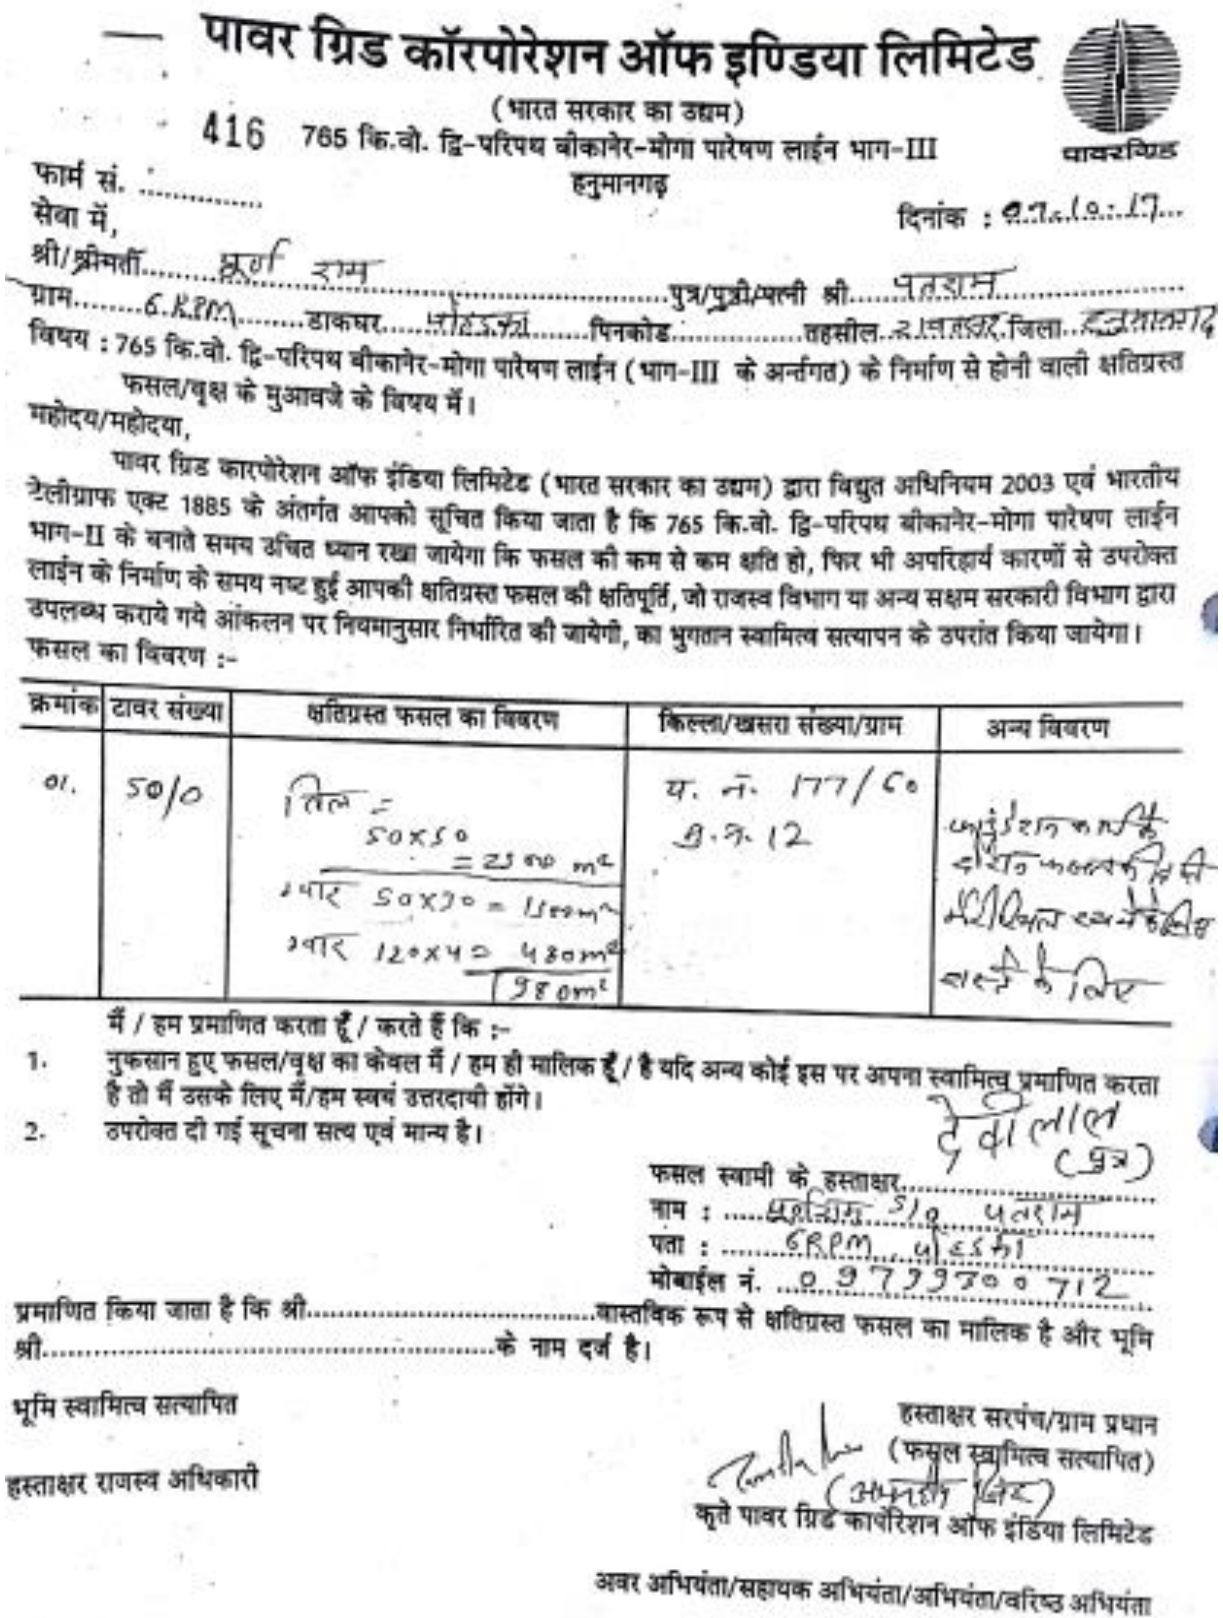 पावर ग्रिड कॉरपोरेशन ऑफ इण्डिया लिमिटेड
(भारत सरकार का उद्यम)
416 765 कि.वो. द्वि-परिपथ बीकानेर-मोगा पारेषण लाईन भाग-III
पावरग्रिड
हनुमानगढ़
फार्म सं. ..............
दिनांक : 07.10.17
सेवा में,
श्री/श्रीमती पूर्ण राम पुत्र/पुत्री/पत्नी श्री पतराम
ग्राम 6.RPM डाकघर पोहडका पिनकोड तहसील रावतसर जिला हनुमानगढ
विषय : 765 कि.वो. द्वि-परिपथ बीकानेर-मोगा पारेषण लाईन (भाग-III के अर्न्तगत) के निर्माण से होनी वाली क्षतिग्रस्त
फसल/वृक्ष के मुआवजे के विषय में।
महोदय/महोदया,
पावर ग्रिड कारपोरेशन ऑफ इंडिया लिमिटेड (भारत सरकार का उद्यम) द्वारा विद्युत अधिनियम 2003 एवं भारतीय
टेलीग्राफ एक्ट 1885 के अंतर्गत आपको सूचित किया जाता है कि 765 कि.वो. द्वि-परिपथ बीकानेर-मोगा पारेषण लाईन
भाग-II के बनाते समय उचित ध्यान रखा जायेगा कि फसल की कम से कम क्षति हो, फिर भी अपरिहार्य कारणों से उपरोक्त
लाईन के निर्माण के समय नष्ट हुई आपकी क्षतिग्रस्त फसल की क्षतिपूर्ति, जो राजस्व विभाग या अन्य सक्षम सरकारी विभाग द्वारा
उपलब्ध कराये गये आंकलन पर नियमानुसार निर्धारित की जायेगी, का भुगतान स्वामित्व सत्यापन के उपरांत किया जायेगा।
फसल का विवरण :-
क्रमांक टावर संख्या क्षतिग्रस्त फसल का विवरण किल्ला/खसरा संख्या/ग्राम अन्य विवरण
01. 50/0 तिल = प. नं. 177/60
50x50 12 फाउंडेशन कार्य के
= 2500 m² दौरान
ग्वार 50x30 = 1500m² मेटीरियल रखने के लिए
ग्वार 120x4= 480m²
1980m² रास्ते के लिए
मैं / हम प्रमाणित करता हूँ / करते हैं कि :-
1. नुकसान हुए फसल/वृक्ष का केवल मैं / हम ही मालिक हूँ / है यदि अन्य कोई इस पर अपना स्वामित्व प्रमाणित करता
है तो मैं उसके लिए मैं/हम स्वयं उत्तरदायी होंगे।
2. उपरोक्त दी गई सूचना सत्य एवं मान्य है।
देवीलाल
(पुत्र)
फसल स्वामी के हस्ताक्षर
नाम : पूर्णराम S/o पतराम
पता : 6RPM, पोहडका
मोबाईल नं. 09799700712
प्रमाणित किया जाता है कि श्री वास्तविक रूप से क्षतिग्रस्त फसल का मालिक है और भूमि
श्री के नाम दर्ज है।
भूमि स्वामित्व सत्यापित
हस्ताक्षर सरपंच/ग्राम प्रधान
(फसल स्वामित्व सत्यापित)
हस्ताक्षर राजस्व अधिकारी
कृते पावर ग्रिड कार्पोरेशन ऑफ इंडिया लिमिटेड
अवर अभियंता/सहायक अभियंता/अभियंता/वरिष्ठ अभियंता